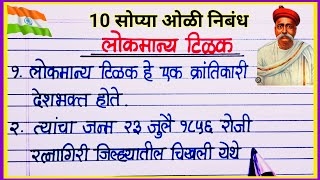 10 सोप्या ओळी निबंध
लोकमान्य टिळक
१. लोकमान्य टिळक हे एक क्रांतिकारी
देशभक्त होते.
२. त्यांचा जन्म २३ जुलै १८५६ रोजी
रत्नागिरी जिल्ह्यातील चिखली येथे